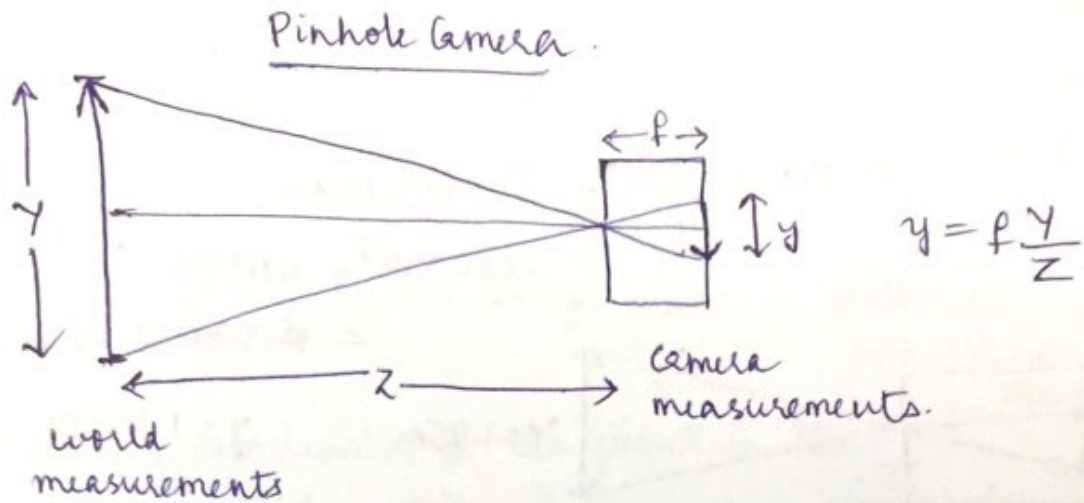 Pinhole Camera.
f
Y
y
y = f Y/Z
Z
camera
measurements.
world
measurements